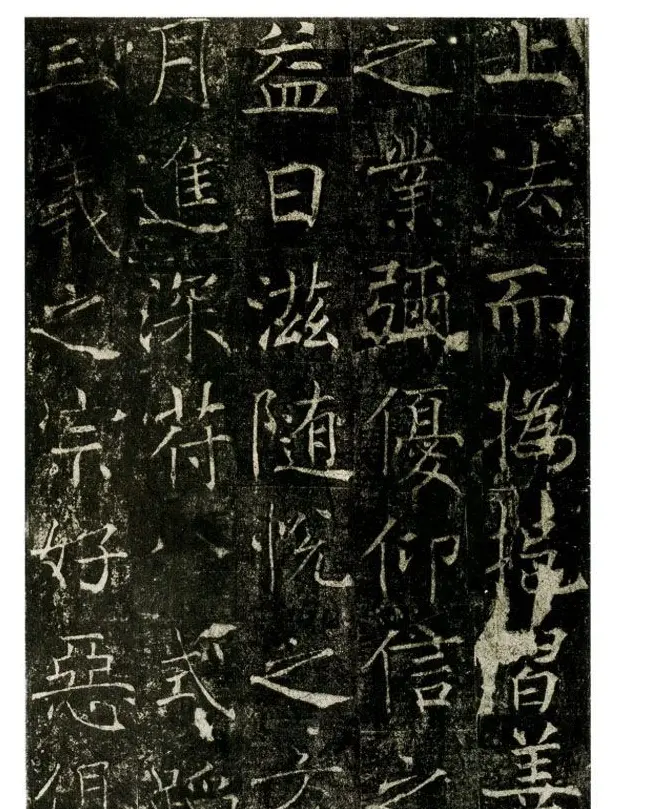 上法而撝揖習善
之業彌優仰信之
益日滋隨悅之方
月進深符八式
三義之宗好惡